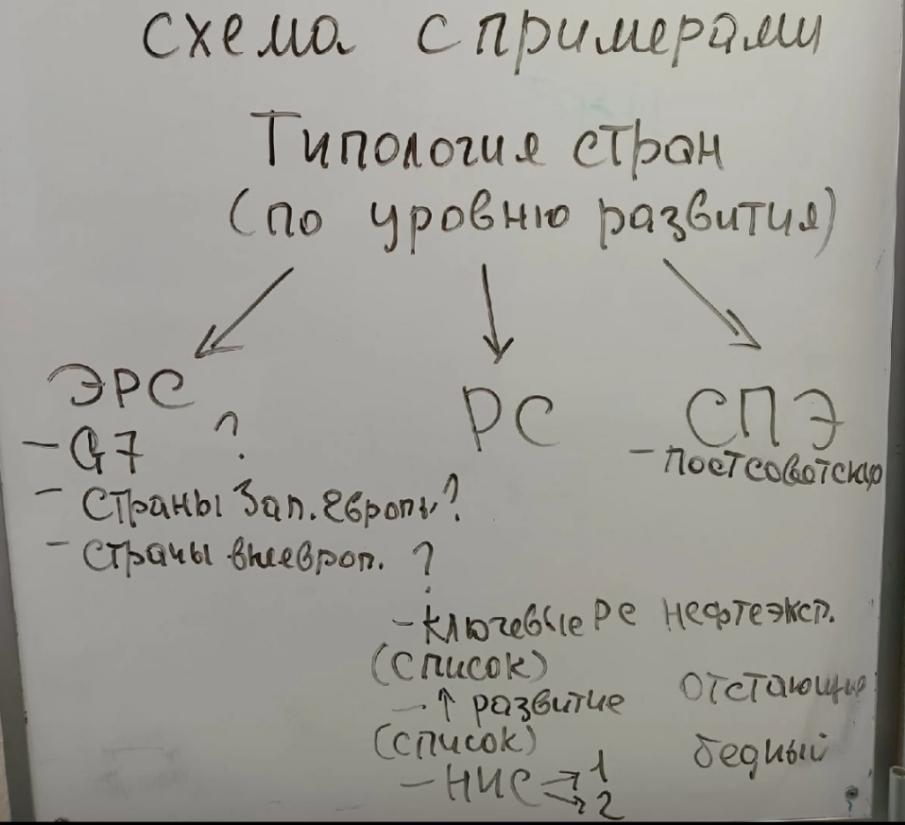 схема с примерами
Типология стран
(по уровню развития)
ЭРС
- G7 ?
- Страны Зап. Европы?
- Страны внеевроп. ?
РС
- ключевые РС
(список)
- ↑ развитие
(список)
- НИС → 1
→ 2
нефтеэксп.
отстающие
бедный
СПЭ
- постсоветские